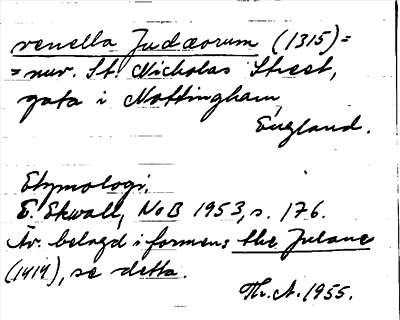 venella Judæorum (1315) =
= nuv. St. Nicholas Street,
gata i Nottingham,
England.
Etymologi.
E. Ekwall, NoB 1953, s. 176.
Äv. belagd i formen: the Julane
(1414), se detta.
Th. A. 1955.